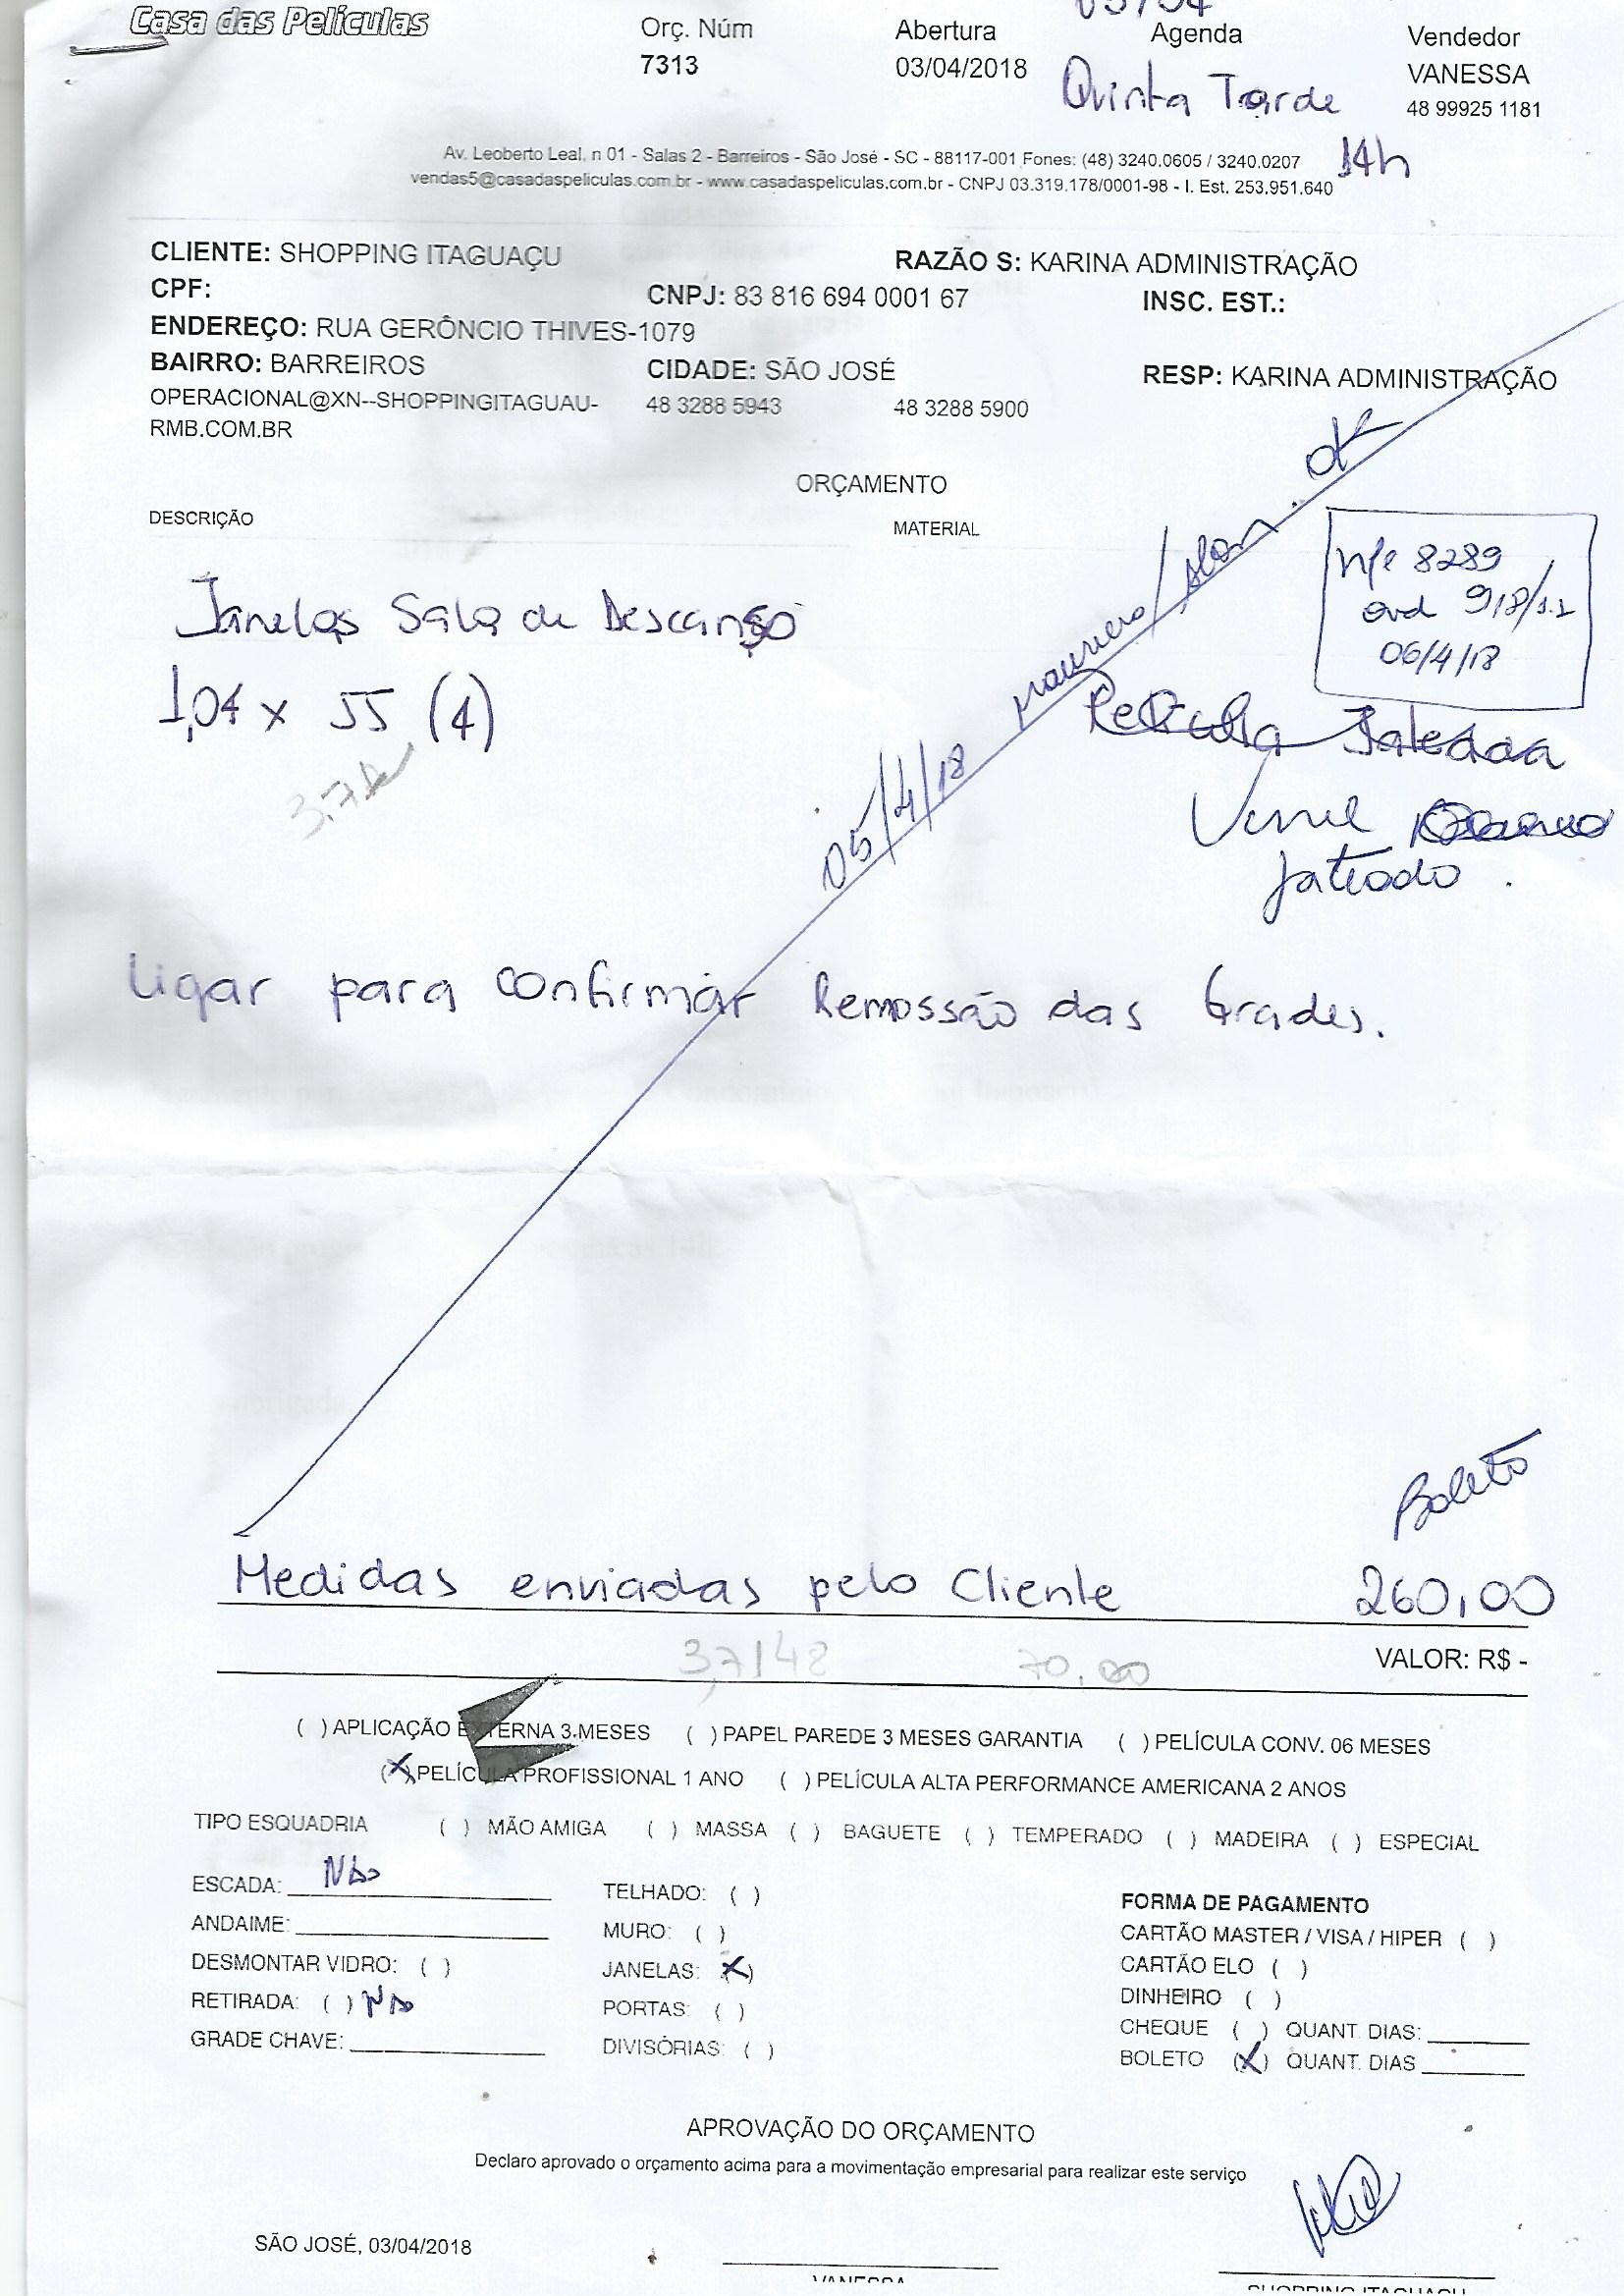 Casa das Películas
Orç. Núm
7313
Abertura
03/04/2018
Agenda
Quinta Tarde
14h
Vendedor
VANESSA
48 99925 1181
Av. Leoberto Leal, n 01 - Salas 2 - Barreiros - São José - SC - 88117-001 Fones: (48) 3240.0605 / 3240.0207
vendas5@casadaspeliculas.com.br - www.casadaspeliculas.com.br - CNPJ 03.319.178/0001-98 - I. Est. 253.951.640
CLIENTE: SHOPPING ITAGUAÇU RAZÃO S: KARINA ADMINISTRAÇÃO
CPF: CNPJ: 83 816 694 0001 67 INSC. EST.:
ENDEREÇO: RUA GERÔNCIO THIVES-1079
BAIRRO: BARREIROS CIDADE: SÃO JOSÉ RESP: KARINA ADMINISTRAÇÃO
OPERACIONAL@XN--SHOPPINGITAGUAU- 48 3288 5943 48 3288 5900
RMB.COM.BR
ORÇAMENTO
DESCRIÇÃO MATERIAL
Janelas Sala de Descanso
1,04 x 55 (4)
05/4/18
OK
Nfe 8289
06/4/18
Película Jateada
Vinil
Jateado.
Ligar para confirmar Remossão das Grades.
Boleto
Medidas enviadas pelo Cliente 260,00
70,00 VALOR: R$ -
( ) APLICAÇÃO EXTERNA 3 MESES ( ) PAPEL PAREDE 3 MESES GARANTIA ( ) PELÍCULA CONV. 06 MESES
(X) PELÍCULA PROFISSIONAL 1 ANO ( ) PELÍCULA ALTA PERFORMANCE AMERICANA 2 ANOS
TIPO ESQUADRIA ( ) MÃO AMIGA ( ) MASSA ( ) BAGUETE ( ) TEMPERADO ( ) MADEIRA ( ) ESPECIAL
ESCADA: Não TELHADO: ( ) FORMA DE PAGAMENTO
ANDAIME: MURO: ( ) CARTÃO MASTER / VISA / HIPER ( )
DESMONTAR VIDRO: ( ) JANELAS: (X) CARTÃO ELO ( )
RETIRADA: ( ) Não PORTAS: ( ) DINHEIRO ( )
GRADE CHAVE: DIVISÓRIAS: ( ) CHEQUE ( ) QUANT. DIAS:
BOLETO (X) QUANT. DIAS
APROVAÇÃO DO ORÇAMENTO
Declaro aprovado o orçamento acima para a movimentação empresarial para realizar este serviço
SÃO JOSÉ, 03/04/2018
VANESSA SHOPPING ITAGUAÇU